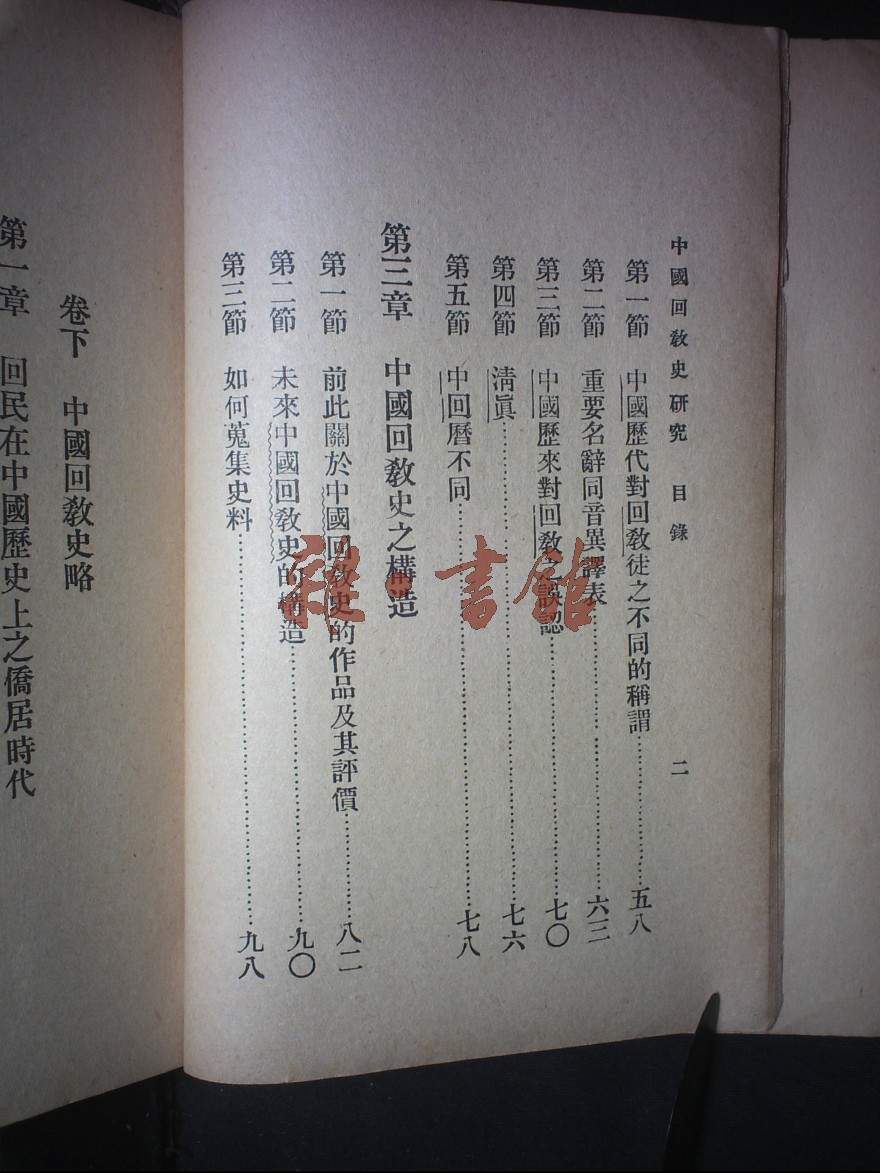 中國回敎史研究 目錄 二
第一節 中國歷代對回敎徒之不同的稱謂……五八
第二節 重要名辭同音異譯表……六三
第三節 中國歷來對回敎之誤認……七〇
第四節 淸眞……七六
第五節 中回曆不同……七八
第三章 中國回敎史之構造
第一節 前此關於中國回敎史的作品及其評價……八二
第二節 未來中國回敎史的構造……九〇
第三節 如何蒐集史料……九八
卷下 中國回敎史略
第一章 回民在中國歷史上之僑居時代
雜·書館